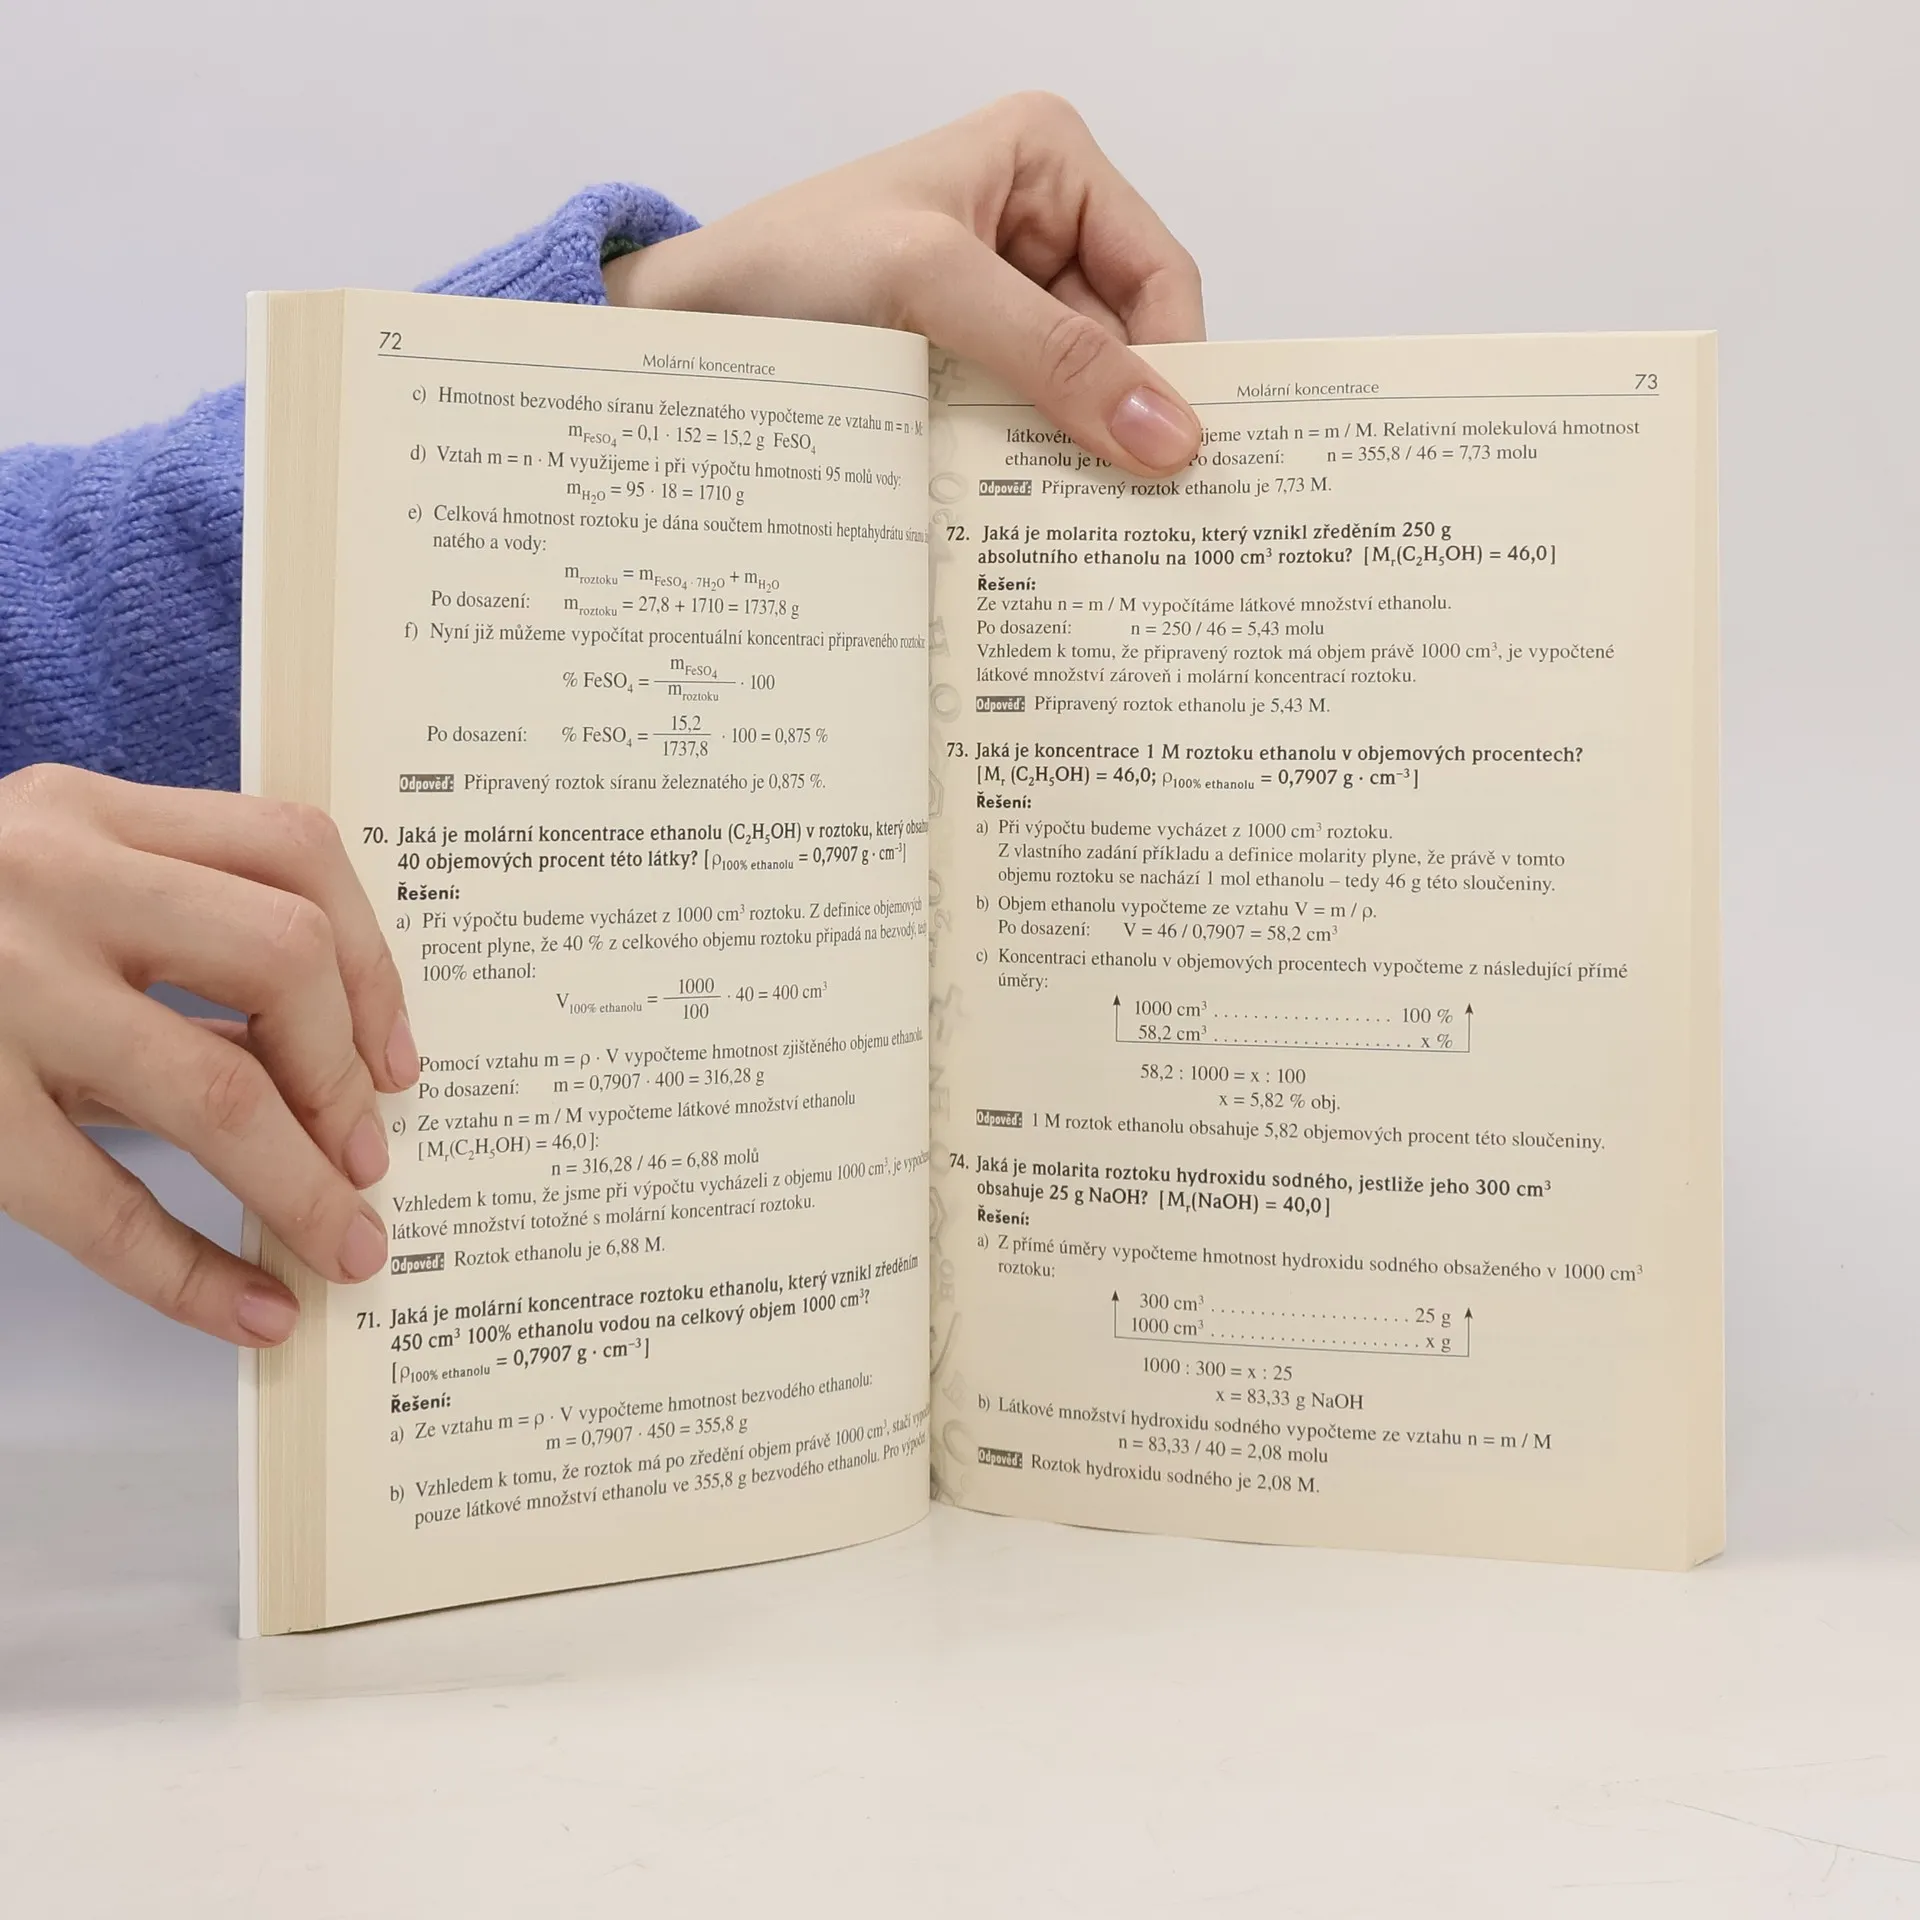 72
Molární koncentrace
c) Hmotnost bezvodého síranu železnatého vypočteme ze vztahu m = n · M:
m FeSO₄ = 0,1 · 152 = 15,2 g FeSO₄
d) Vztah m = n · M využijeme i při výpočtu hmotnosti 95 molů vody:
m H₂O = 95 · 18 = 1710 g
e) Celková hmotnost roztoku je dána součtem hmotnosti heptahydrátu
natého a vody:
m roztoku = m FeSO₄ · 7H₂O + m H₂O
Po dosazení: m roztoku = 27,8 + 1710 = 1737,8 g
f) Nyní již můžeme vypočítat procentuální koncentraci připraveného roztoku:
% FeSO₄ = m FeSO₄ / m roztoku · 100
Po dosazení: % FeSO₄ = 15,2 / 1737,8 · 100 = 0,875 %
Odpověď: Připravený roztok síranu železnatého je 0,875 %.
70. Jaká je molární koncentrace ethanolu (C₂H₅OH) v roztoku, který
40 objemových procent této látky? [ρ100% ethanolu = 0,7907 g · cm⁻³]
Řešení:
a) Při výpočtu budeme vycházet z 1000 cm³ roztoku. Z definice objemových
procent plyne, že 40 % z celkového objemu roztoku připadá na bezvodý,
100% ethanol:
V100% ethanolu = 1000 / 100 · 40 = 400 cm³
Pomocí vztahu m = ρ · V vypočteme hmotnost zjištěného objemu ethanolu.
Po dosazení: m = 0,7907 · 400 = 316,28 g
c) Ze vztahu n = m / M vypočteme látkové množství ethanolu
[Mr(C₂H₅OH) = 46,0]:
n = 316,28 / 46 = 6,88 molů
Vzhledem k tomu, že jsme při výpočtu vycházeli z objemu 1000 cm³, je
látkové množství totožné s molární koncentrací roztoku.
Odpověď: Roztok ethanolu je 6,88 M.
71. Jaká je molární koncentrace roztoku ethanolu, který vznikl zředěním
450 cm³ 100% ethanolu vodou na celkový objem 1000 cm³?
[ρ100% ethanolu = 0,7907 g · cm⁻³]
Řešení:
a) Ze vztahu m = ρ · V vypočteme hmotnost bezvodého ethanolu:
m = 0,7907 · 450 = 355,8 g
b) Vzhledem k tomu, že roztok má po zředění objem právě 1000 cm³, stačí
pouze látkové množství ethanolu ve 355,8 g bezvodého ethanolu. Pro výpočet
Molární koncentrace
73
vztah n = m / M. Relativní molekulová hmotnost
ethanolu je Po dosazení: n = 355,8 / 46 = 7,73 molu
Odpověď: Připravený roztok ethanolu je 7,73 M.
72. Jaká je molarita roztoku, který vznikl zředěním 250 g
absolutního ethanolu na 1000 cm³ roztoku? [Mr(C₂H₅OH) = 46,0]
Řešení:
Ze vztahu n = m / M vypočítáme látkové množství ethanolu.
Po dosazení: n = 250 / 46 = 5,43 molu
Vzhledem k tomu, že připravený roztok má objem právě 1000 cm³, je vypočtené
látkové množství zároveň i molární koncentrací roztoku.
Odpověď: Připravený roztok ethanolu je 5,43 M.
73. Jaká je koncentrace 1 M roztoku ethanolu v objemových procentech?
[Mr (C₂H₅OH) = 46,0; ρ100% ethanolu = 0,7907 g · cm⁻³]
Řešení:
a) Při výpočtu budeme vycházet z 1000 cm³ roztoku.
Z vlastního zadání příkladu a definice molarity plyne, že právě v tomto
objemu roztoku se nachází 1 mol ethanolu – tedy 46 g této sloučeniny.
b) Objem ethanolu vypočteme ze vztahu V = m / ρ.
Po dosazení: V = 46 / 0,7907 = 58,2 cm³
c) Koncentraci ethanolu v objemových procentech vypočteme z následující přímé
úměry:
1000 cm³ .................. 100 %
58,2 cm³ .................... x %
58,2 : 1000 = x : 100
x = 5,82 % obj.
Odpověď: 1 M roztok ethanolu obsahuje 5,82 objemových procent této sloučeniny.
74. Jaká je molarita roztoku hydroxidu sodného, jestliže jeho 300 cm³
obsahuje 25 g NaOH? [Mr(NaOH) = 40,0]
Řešení:
a) Z přímé úměry vypočteme hmotnost hydroxidu sodného obsaženého v 1000 cm³
roztoku:
300 cm³ .................... 25 g
1000 cm³ ..................... x g
1000 : 300 = x : 25
x = 83,33 g NaOH
b) Látkové množství hydroxidu sodného vypočteme ze vztahu n = m / M
n = 83,33 / 40 = 2,08 molu
Odpověď: Roztok hydroxidu sodného je 2,08 M.